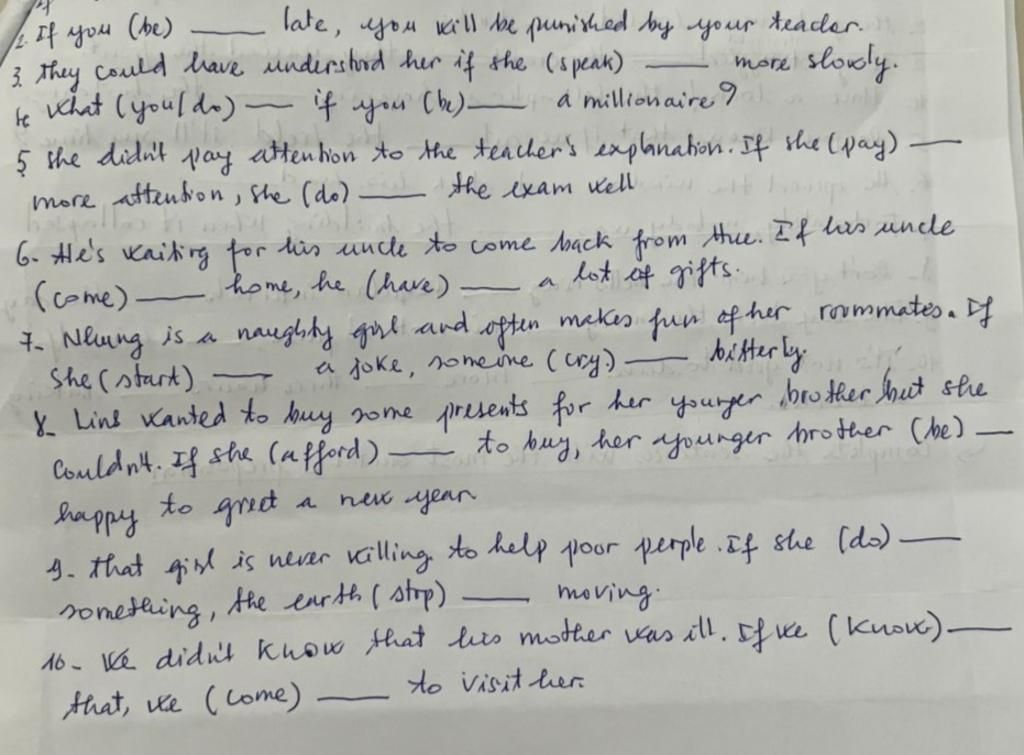 2. If you (be) ____ late, you will be punished by your teacher.
3. they could have understood her if she (speak) ____ more slowly.
4. What (you/do) ____ if you (be) ____ a millionaire?
5 she didn't pay attention to the teacher's explanation. If she (pay) ____
more attention, she (do) ____ the exam well
6- He's waiting for his uncle to come back from Hue. If his uncle
(come) ____ home, he (have) ____ a lot of gifts.
7- Nhung is a naughty girl and often makes fun of her roommates. If
she (start) ____ a joke, someone (cry) ____ bitterly.
8- Linh wanted to buy some presents for her younger brother but she
couldn't. If she (afford) ____ to buy, her younger brother (be) ____
happy to greet a new year
9- that girl is never willing to help poor people. If she (do) ____
something, the earth (stop) ____ moving.
10- We didn't know that his mother was ill. If we (know) ____
that, we (come) ____ to visit her.